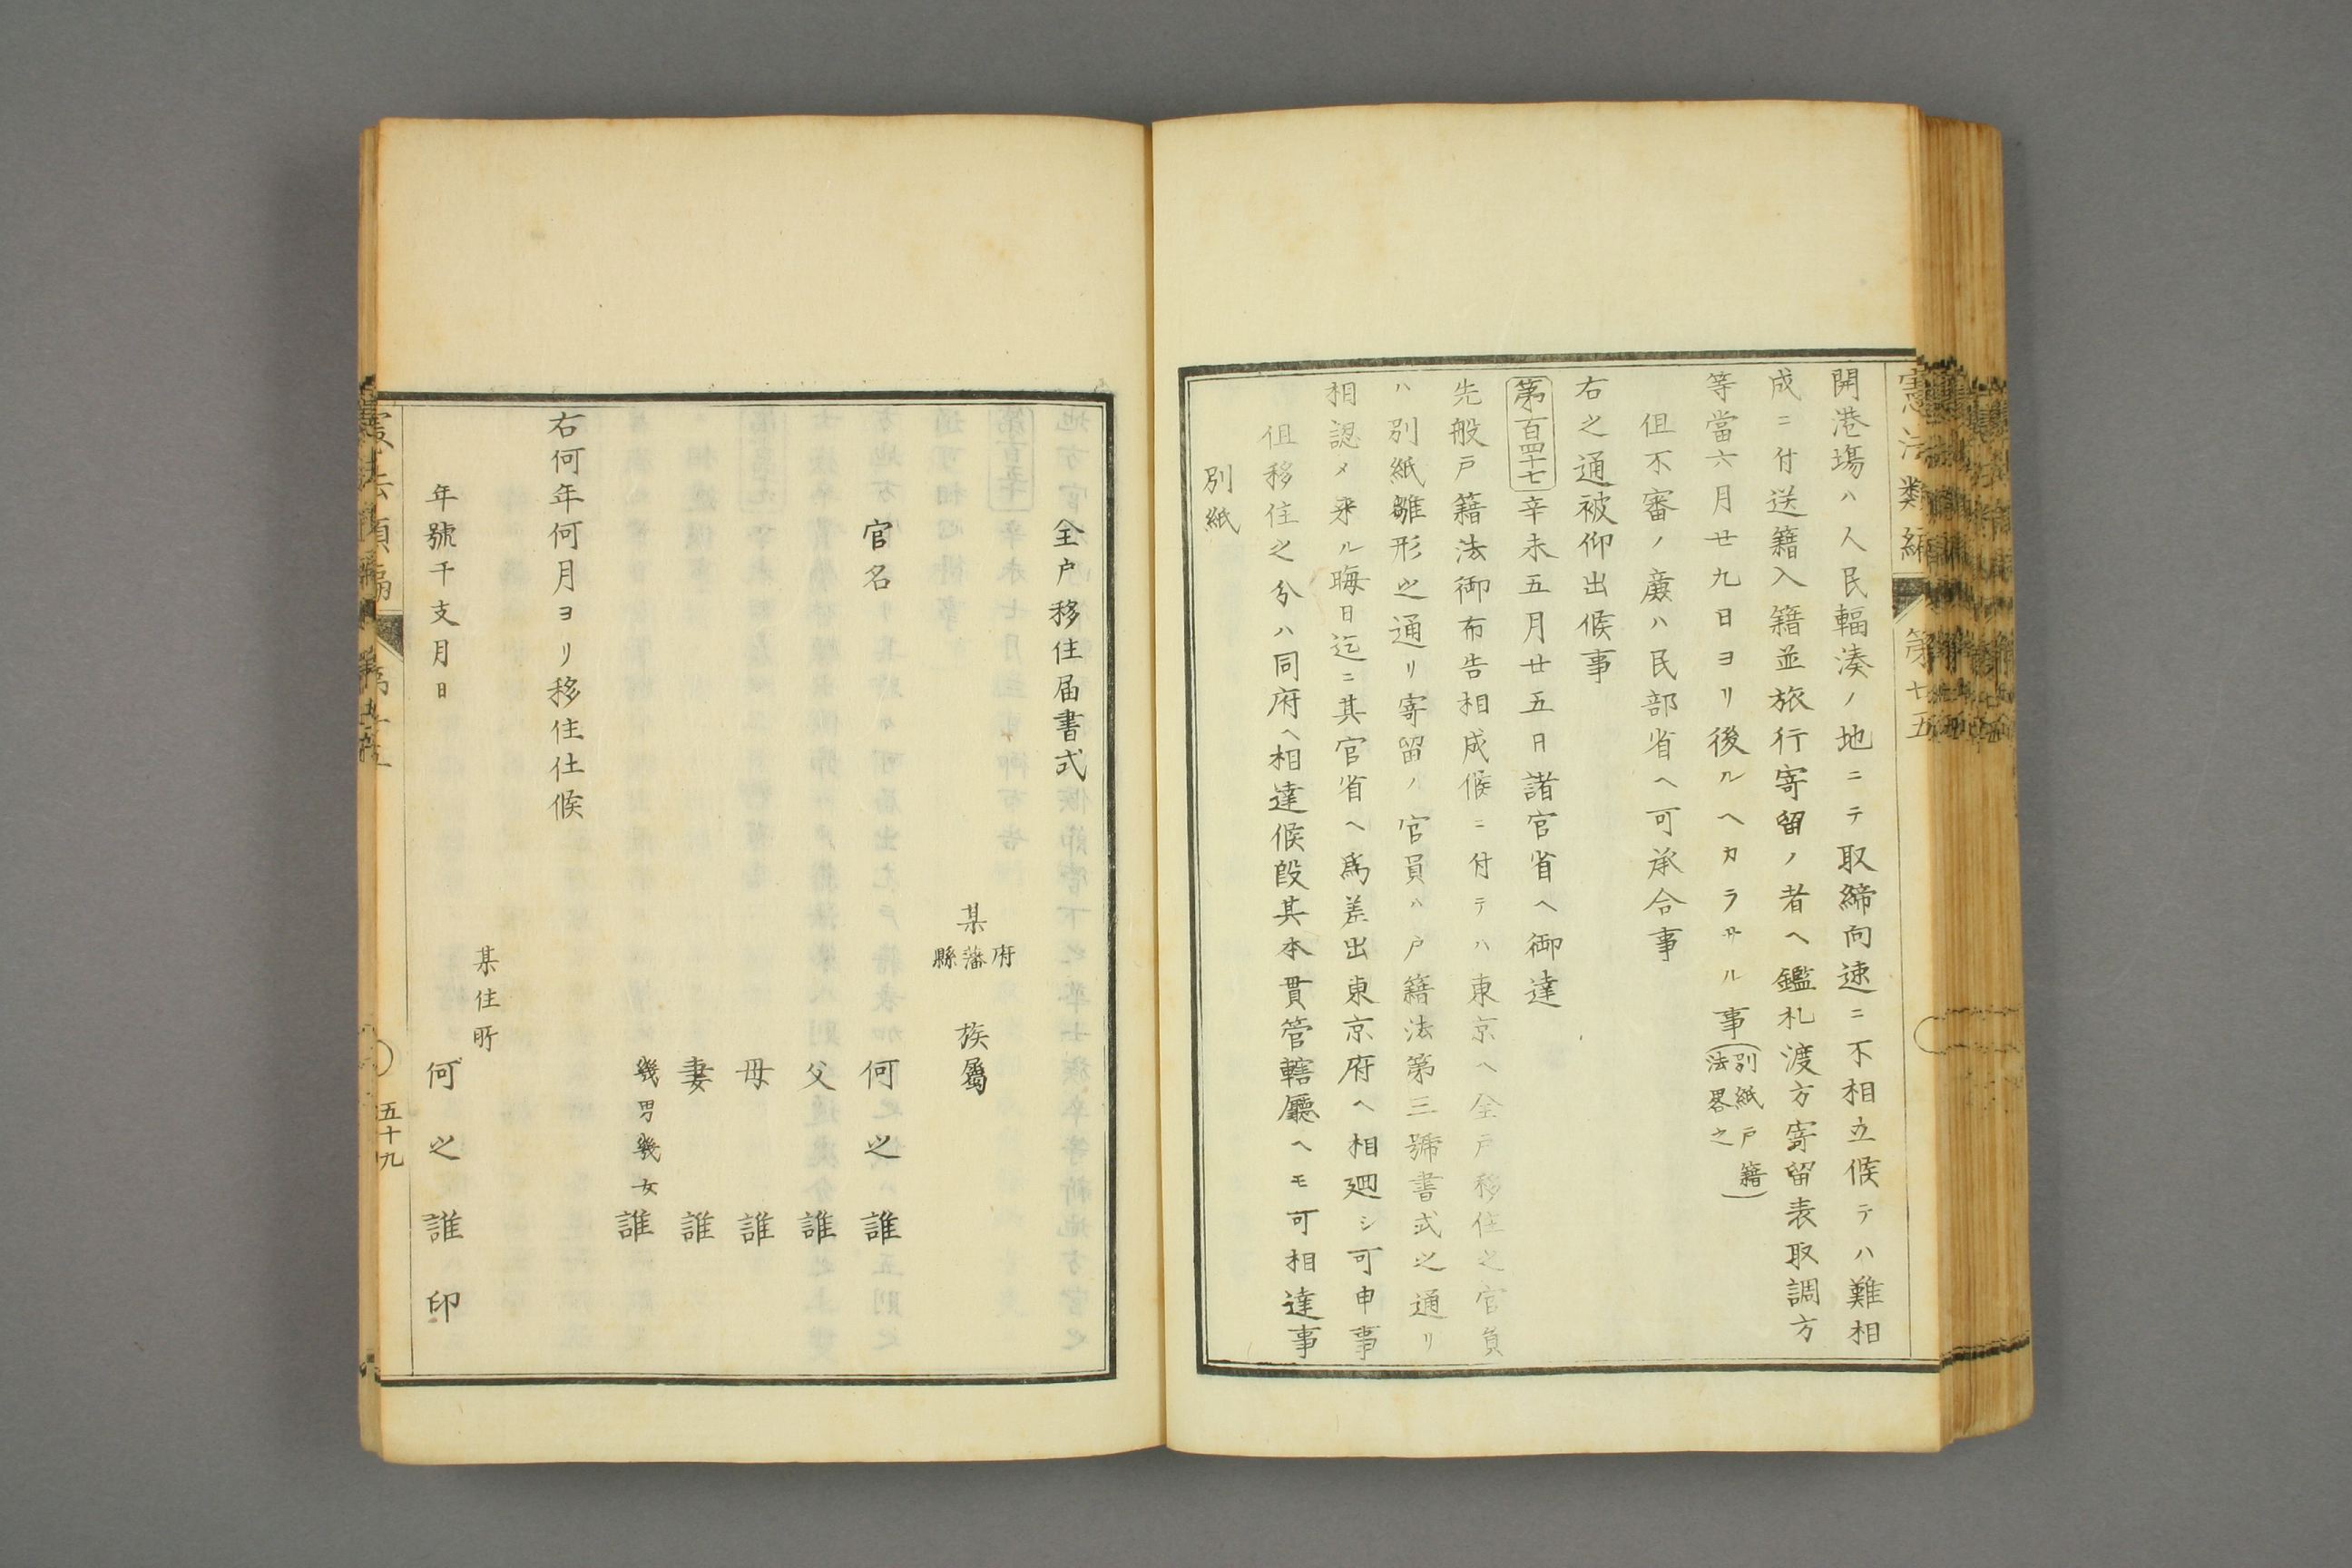 憲法類編
第七五
開港場ハ人民輻湊ノ地ニテ取締向速ニ不相立候テハ難相
成ニ付送籍入籍並旅行寄留ノ者ヘ鑑札渡方寄留表取調方
等當六月廿九日ヨリ後ルヘカラサル事(別紙戸籍法畧之)
但不審ノ廉ハ民部省ヘ可承合事
右之通被仰出候事
第百四十七辛未五月廿五日諸官省ヘ御達
先般戸籍法御布告相成候ニ付テハ東京ヘ全戸移住之官員
ハ別紙雛形之通リ寄留ノ官員ハ戸籍法第三號書式之通リ
相認メ来ル晦日迄ニ其官省ヘ爲差出東京府ヘ相廻シ可申事
但移住之分ハ同府ヘ相達候段其本貫管轄廳ヘモ可相達事
別紙
全戸移住届書式
某府藩縣 族屬
官名 何之誰
父 誰
母 誰
妻 誰
幾男幾女 誰
右何年何月ヨリ移住仕候
某住所
年號干支月日 何之誰印
憲法類編
五十九